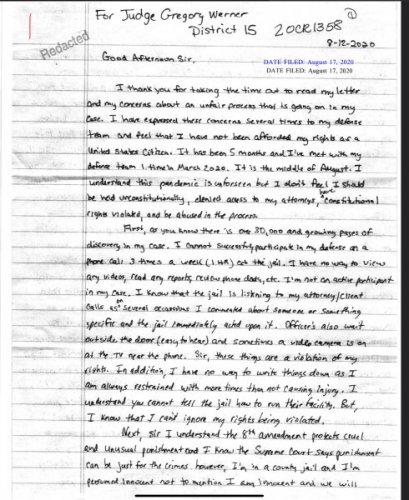 For Judge Gregory Werner ①
District 15 20CR1358
Redacted
8-12-2020
Good Afternoon Sir,
DATE FILED: August 17, 2020
DATE FILED: August 17, 2020
I thank you for taking the time out to read my letter
and my concerns about an unfair process that is going on in my
case. I have expressed these concerns several times to my defense
team and feel that I have not been afforded my rights as a
United States Citizen. It has been 5 months and I've met with my
defense team 1 time in March 2020. It is the middle of August. I
understand this pandemic is unforseen but I don't feel I should
be held unconstitutionally, denied access to my attorneys, have constitutional
rights violated, and be abused in the process.
First, as you know there is over 30,000 and growing pages of
discovery in my case. I cannot successfully participate in my defense on a
phone call 3 times a week (1 HR) at the jail. I have no way to view
any videos, read any reports, review phone data, etc. I'm not an active participant
in my case. I know that the jail is listning to my attorney/client
calls as on several occassions I commented about someone or something
specific and the jail immediately acted upon it. Officer's also wait
outside the door (easy to hear) and sometimes a video camera is on
at the TV near the phone. Sir, these things are a violation of my
rights. In addition, I have no way to write things down as I
am always restrained with more times than not causing injury. I
understand you cannot tell the jail how to run their facility. But,
I know that I can't ignore my rights being violated.
Next, sir I understand the 8th amendment protects cruel
and unusual punishment and I know the Supreme Court says punishment
can be just for the crimes however, I'm in a county jail and I'm
presumed innocent not to mention I am innocent and we will